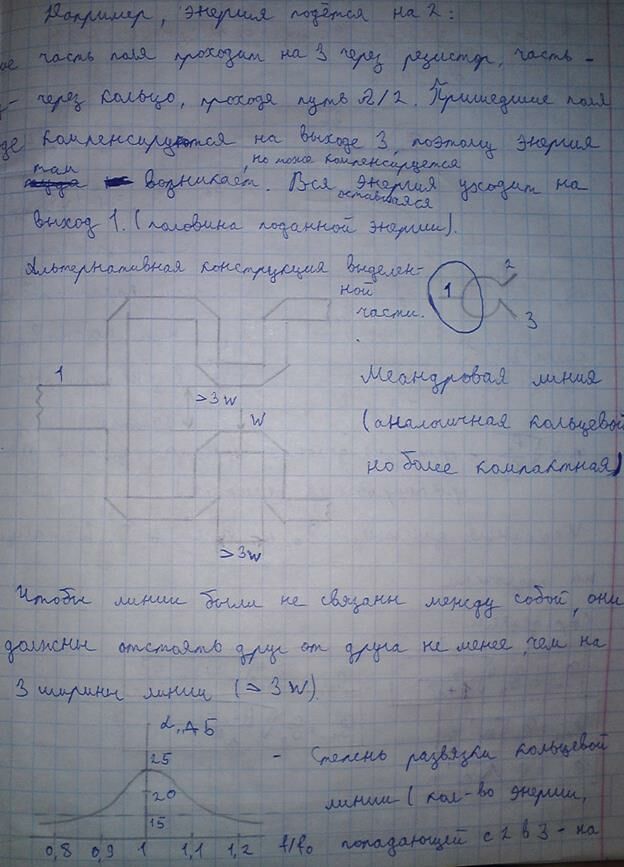 Например, энергия подётся на 2:
часть поля проходит на 3 через резистор, часть -
через кольцо, проходя путь λ/2. Пришедшие поля
компенсируются на выходе 3, поэтому энергия
там возникает, но тоже компенсируется. Вся оставшаяся энергия уходит на
выход 1. (половина поданной энергии).
Альтернативная конструкция выделен-
ной
части.
1 2
3
1
>3W
W
>3W
Меандровая линия
(аналогичная кольцевой
но более компактная)
Чтобы линии были не связаны между собой, они
должны отстоять друг от друга не менее, чем на
3 ширины линии (>3W)
α, дБ
25
20
15
0,8 0,9 1 1,1 1,2 f/f₀
- Степень развязки кольцевой
линии (кол-во энергии,
попадающей с 2 в 3 - на